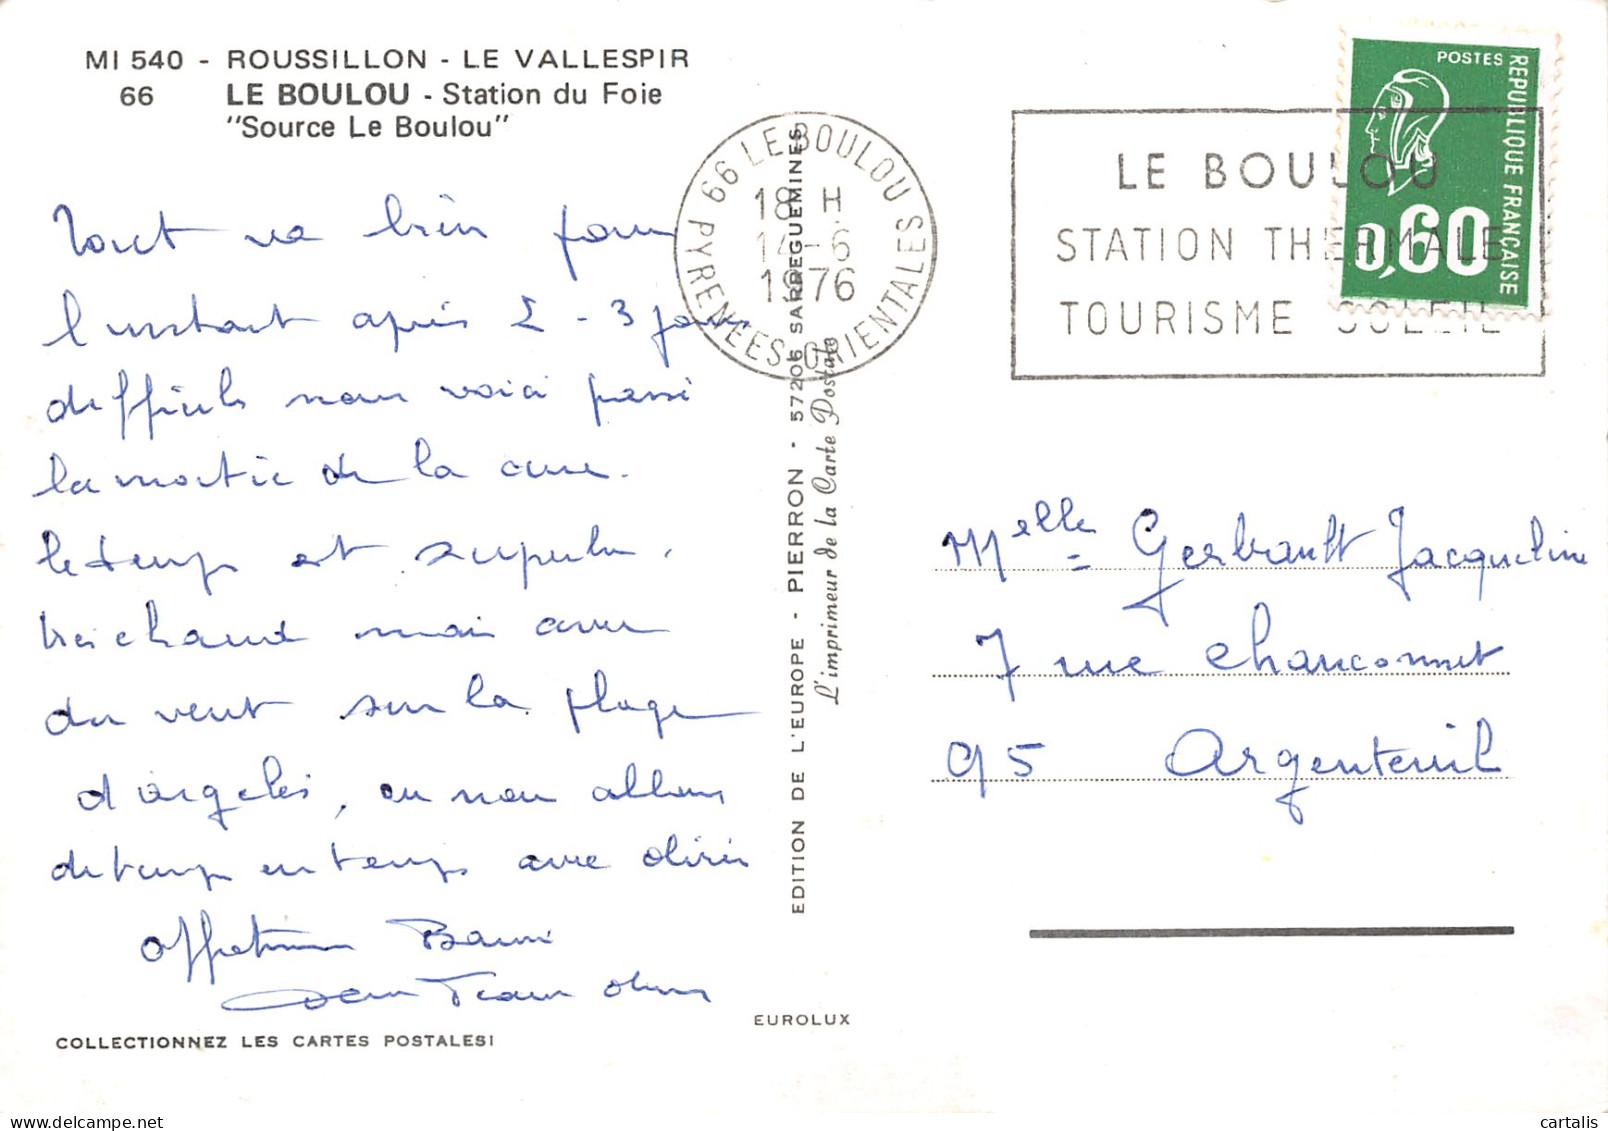 MI 540 - ROUSSILLON - LE VALLESPIR
66 LE BOULOU - Station du Foie
"Source Le Boulou"
Tout va bien pour
l'instant après 2 - 3 jours
difficiles nous voici passé
la moitié de la cure.
le temps est superbe,
très chaud mais avec
du vent sur la plage
d'argelès, ou nous allons
de temps en temps avec
affectueux
Jean
COLLECTIONNEZ LES CARTES POSTALES!
66 LE BOULOU
18 H
14-6
1976
PYRENEES-ORIENTALES
EDITION DE L'EUROPE - PIERRON - 57206 SARREGUEMINES
L'imprimeur de la Carte Postale
EUROLUX
LE BOULOU
STATION THERMALE
TOURISME SOLEIL
POSTES
REPUBLIQUE FRANÇAISE
0,60
Melle Gerbault Jacqueline
7 rue Chauconnet
95 Argenteuil
cartalis